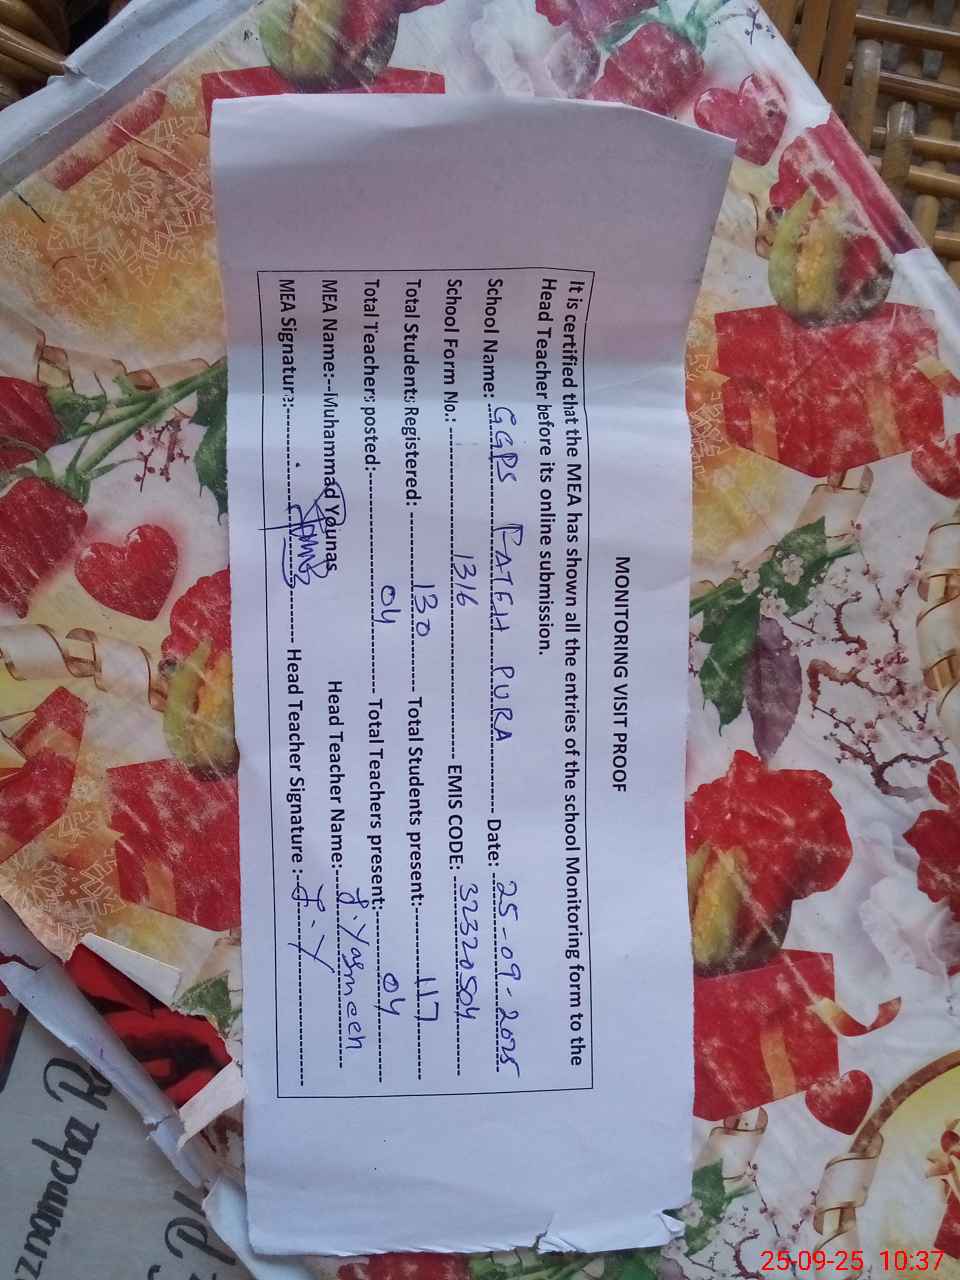 MONITORING VISIT PROOF
It is certified that the MEA has shown all the entries of the school Monitoring form to the
Head Teacher before its online submission.
School Name: GGPS FATEH PURA Date: 25-09-2025
School Form No.: 1316 EMIS CODE: 32320504
Total Students Registered: 130 Total Students present: 117
Total Teachers posted: 04 Total Teachers present: 04
MEA Name:--Muhammad Younas Head Teacher Name: F. Yasmeen
MEA Signature: Head Teacher Signature : F.Y
znamcha R
25-09-25 10:37